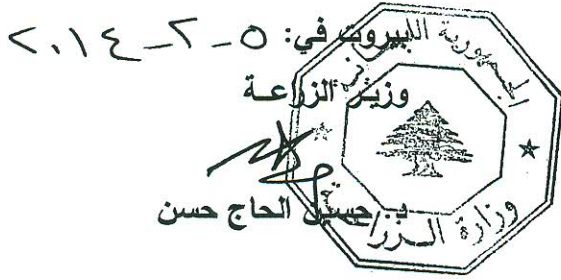 بيروت في: ٥-٢-٢٠١٤
وزير الزراعـة
د. حسين الحاج حسن
الجمهورية اللبنانية
وزارة الـزراعة